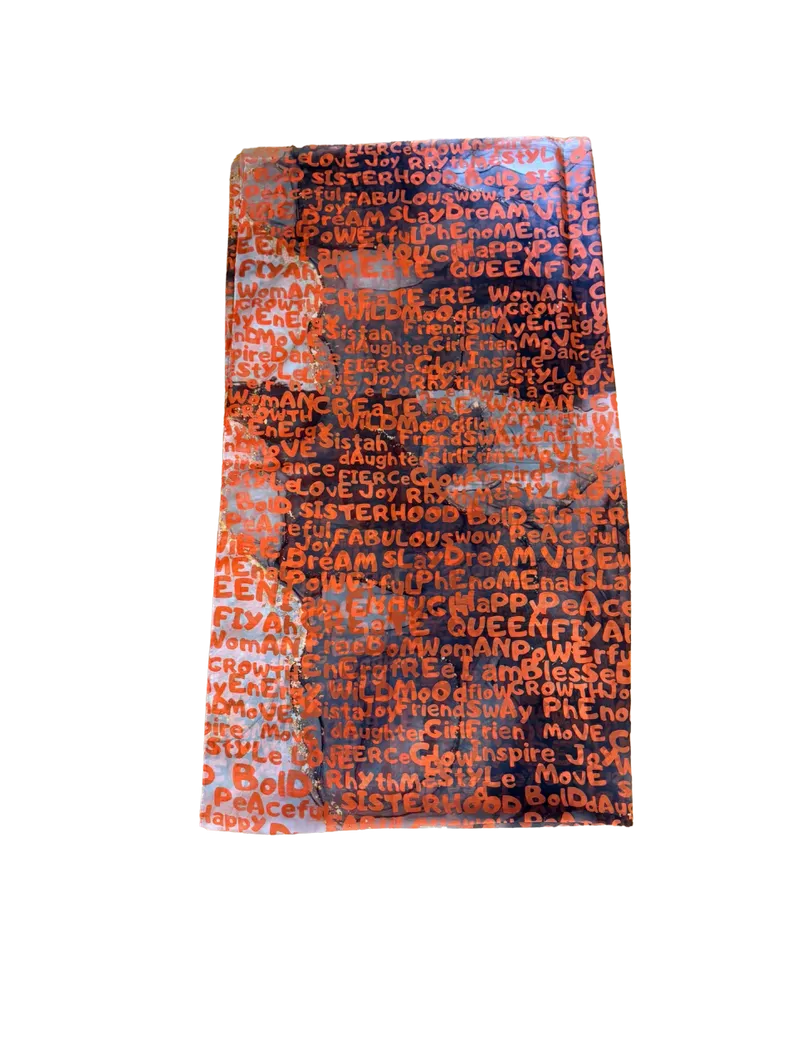 FIERCeGlowInspire
LOvE Joy RhythMeStyL
SISTERHOOD BolD SIS
ceful FABULOUSwow PeAceful
Joy
DreAM SLayDreAM ViBE
PoWErfuLPhEnoMEnaLSL
EEN I am ENOUGH HaPPyPeAC
FIYAh CREaTE QUEENFIYA
WomANCREaTE fRE WomAN C
GROWTH WiLDMoOdfloWGROWTH W
AyEnErgy Sistah FriendSwAyEnErgy
nDMoVE dAughterGirlFrien MoVE
pireDance FIERCeGlowInspire Dance
StyLeLOvE Joy RhythMeStyLeLOv
WomANCREaTE fRE WomAN
GROWTH WiLDMoOdfloWGROWTH W
AyEnErgy Sistah FriendSwAyEnErgySis
nDMoVE dAughterGirlFrienMoVE
pireDance FIERCeGlowInspire
StyLe LOvE Joy RhythMeStyLe
BolD SISTERHOOD BolD SISTER
PeAceful Joy FABULOUSwow PeAceful
ViBE DreAM SLayDreAM ViBEw
MEnaL PoWErfuLPhEnoMEnaLSLa
EEN I am ENOUGH HaPPyPeAce
FIYAh CREaTE QUEENFIYAh
WomAN frEeDomWomANPoWErf
GROWTH EnErgyfREe I amBlesseD
AyEnErgy WiLDMoOdfloWGROWTHJo
nDMoVE SistaJoyFriendSwAy PhEno
pire MoVE dAughterGirlFrien MoVE C
StyLe LOvE FIERCeGlowInspire JoyK
D BolD RhythMeStyLe MovE S
PeAceful SISTERHOOD BolDdAug
Happy D